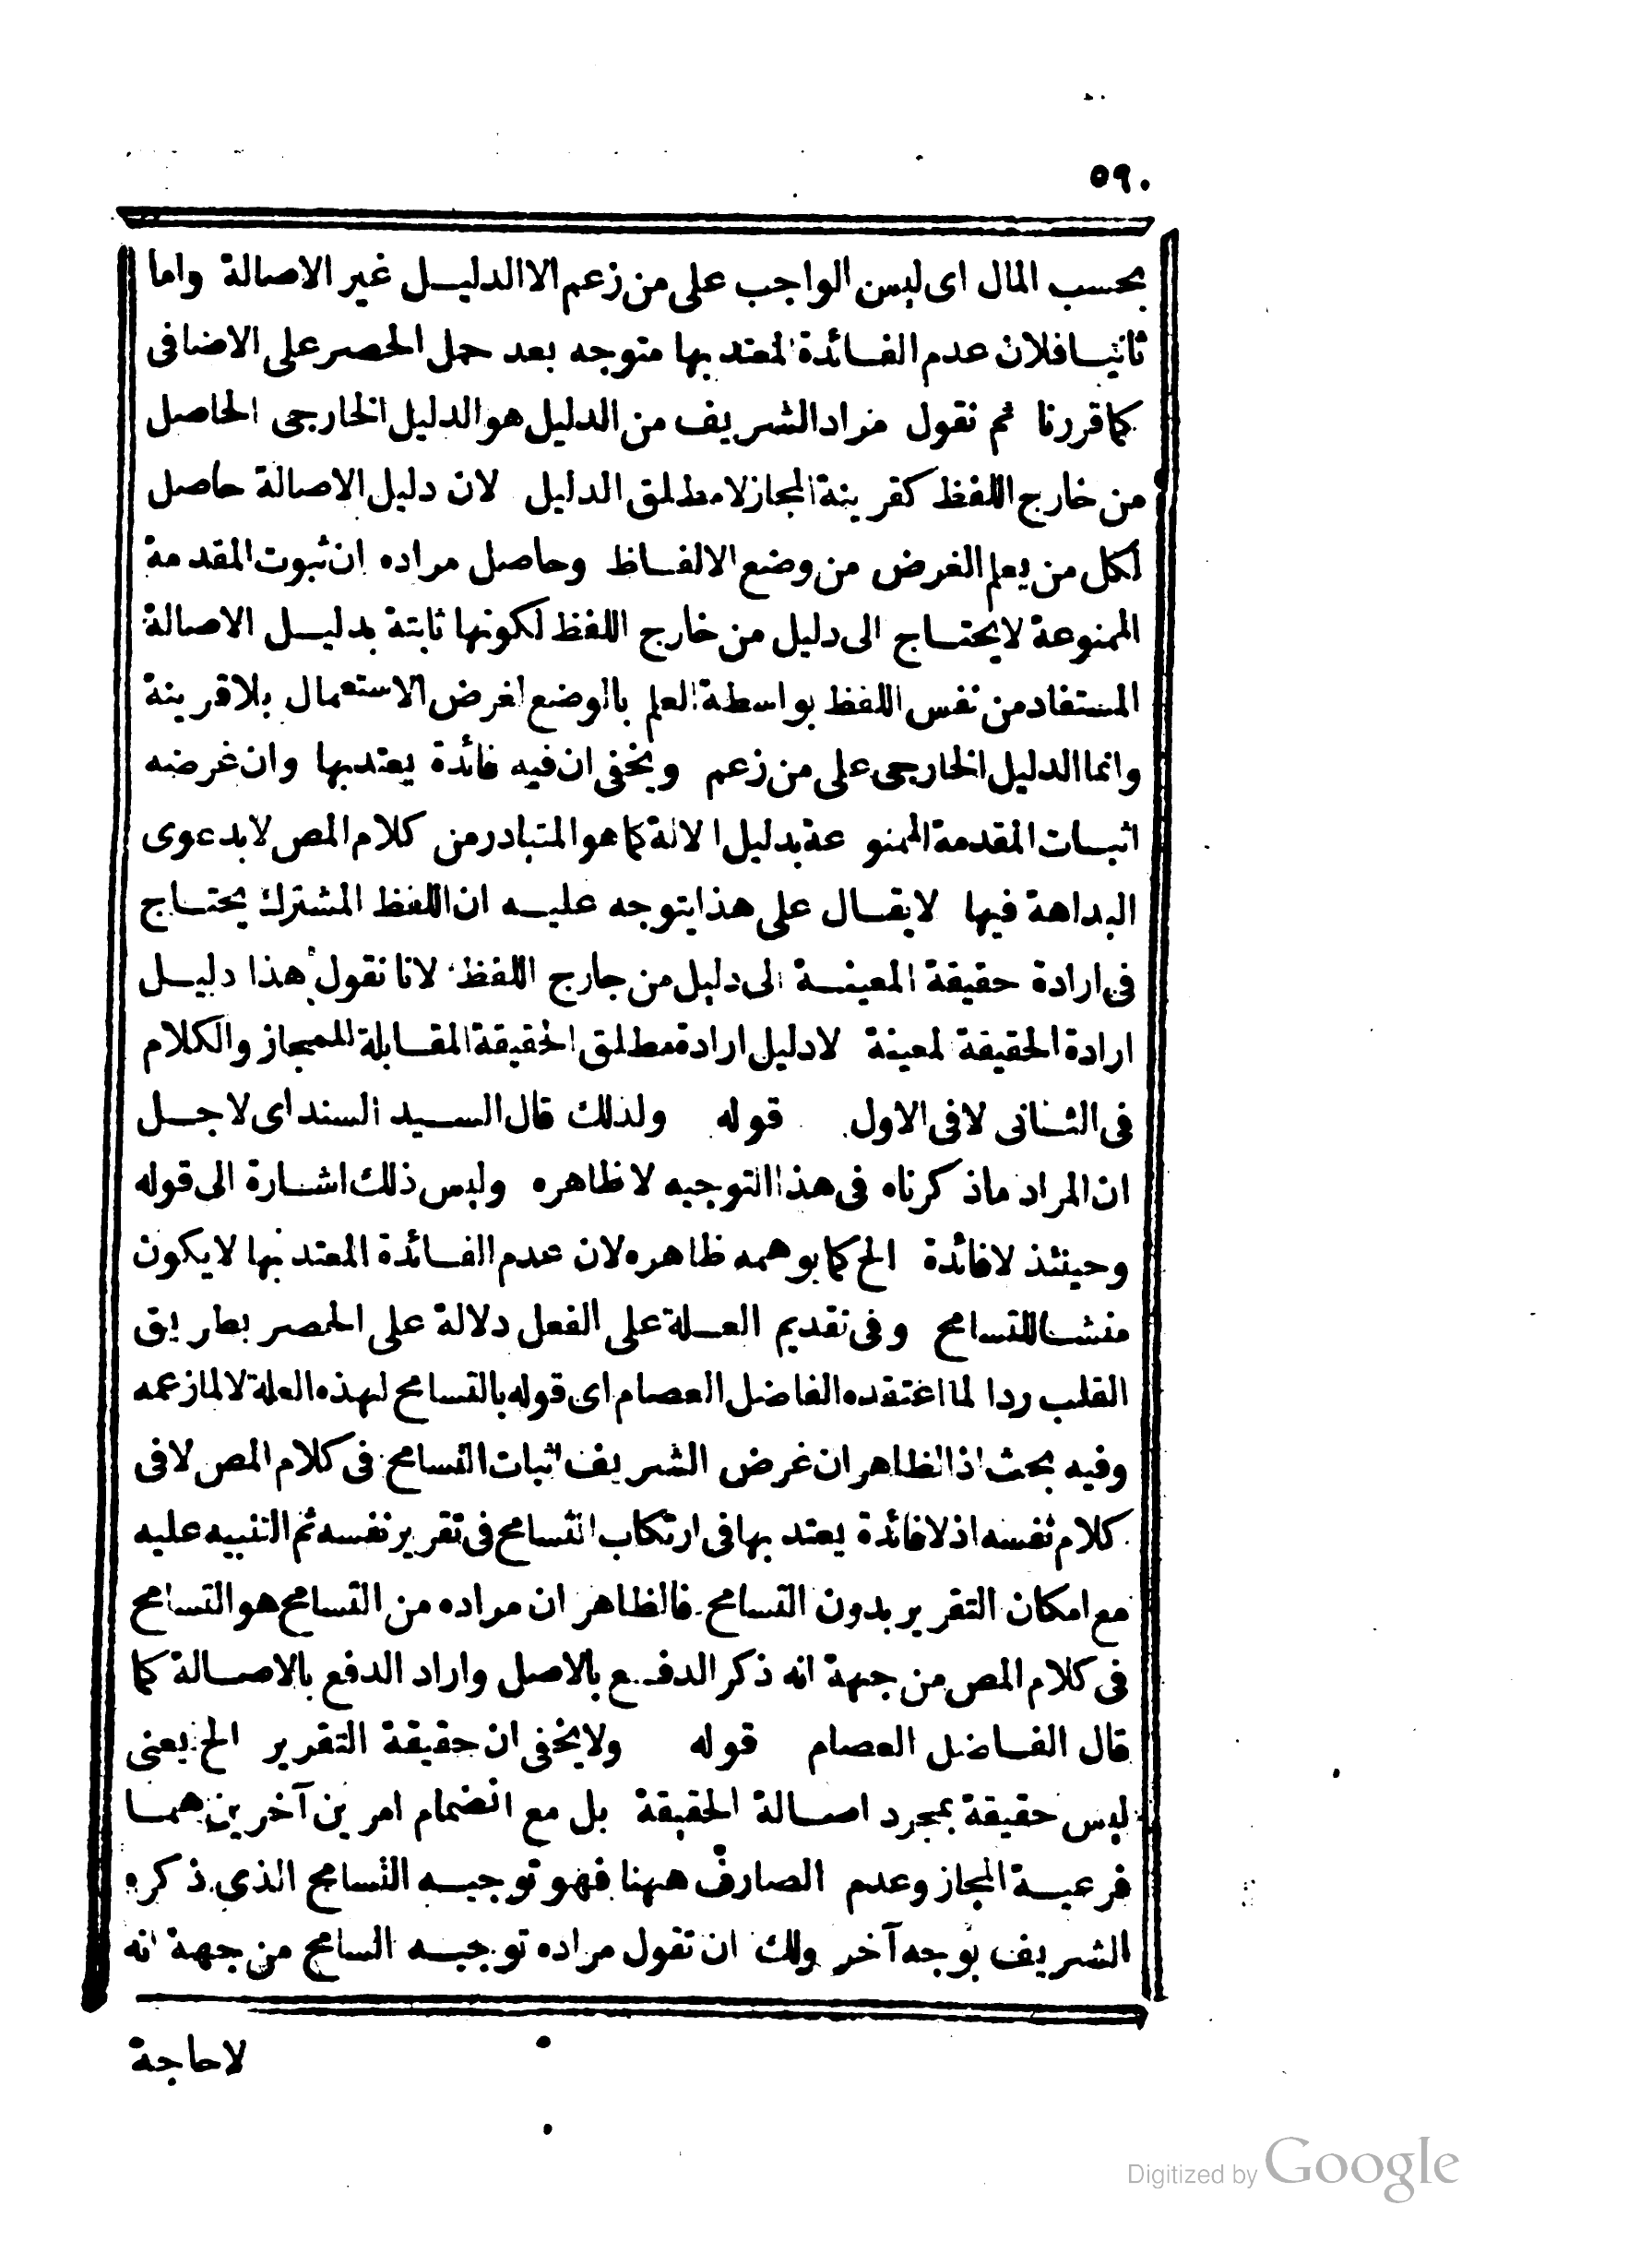 ٥٩٠
بحسب المال اى ليس الواجب على من زعم الا الدليل غير الاصالة واما
ثانيا فلان عدم الفائدة المعتد بها متوجه بعد حمل الحصر على الاضافى
كما قررنا ثم نقول مراد الشريف من الدليل هو الدليل الخارجى الحاصل
من خارج اللفظ كقرينة المجاز لا مطلق الدليل لان دليل الاصالة حاصل
لكل من يعلم الغرض من وضع الالفاظ وحاصل مراده ان ثبوت المقدمة
الممنوعة لا يحتاج الى دليل من خارج اللفظ لكونها ثابتة بدليل الاصالة
المستفاد من نفس اللفظ بواسطة العلم بالوضع لغرض الاستعمال بلا قرينة
وانما الدليل الخارجى على من زعم ويخفى ان فيه فائدة يعتد بها وان غرضه
اثبات المقدمة الممنوعة بدليل الا لالة كما هو المتبادر من كلام المص لا بدعوى
البداهة فيها لا يقال على هذا يتوجه عليه ان اللفظ المشترك يحتاج
فى ارادة حقيقة المعينة الى دليل من جارج اللفظ لانا نقول هذا دليل
ارادة الحقيقة لمعينة لا دليل ارادة مطلق الحقيقة المقابلة للمجاز والكلام
فى الثانى لا فى الاول قوله ولذلك قال السيد السند اى لاجل
ان المراد ماذكرناه فى هذا التوجيه لا ظاهره وليس ذلك اشارة الى قوله
وحينئذ لا فائدة الخ كما يوهمه ظاهره لان عدم الفائدة المعتد بها لا يكون
منشا للتسامح وفى تقديم العلة على الفعل دلالة على الحصر بطريق
القلب ردا لما اعتقده الفاضل العصام اى قوله بالتسامح لهذه العلة لا لما زعمه
وفيه بحث اذ الظاهر ان غرض الشريف اثبات التسامح فى كلام المص لا فى
كلام نفسه اذ لا فائدة يعتد بها فى ارتكاب التسامح فى تقرير نفسه ثم التنبيه عليه
مع امكان التقرير بدون التسامح فالظاهر ان مراده من التسامح هو التسامح
فى كلام المص من جهة انه ذكر الدفع بالاصل واراد الدفع بالاصالة كما
قال الفاضل العصام قوله ولا يخفى ان حقيقة التقرير الخ يعنى
ليس حقيقة بمجرد اصالة الحقيقة بل مع انضمام امرين آخرين هما
فرعية المجاز وعدم الصارف ههنا فهو توجيه التسامح الذى ذكره
الشريف بوجه آخر ولك ان تقول مراده توجيه السامح من جهة انه
لا حاجة
Digitized by Google